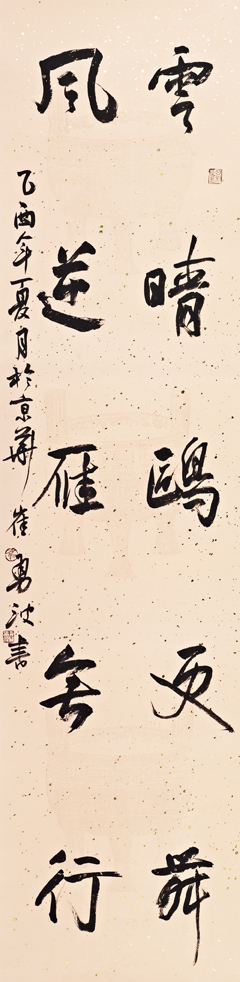 雲晴鷗更舞
風逆雁無行
乙酉年夏月於京華崔勇波書